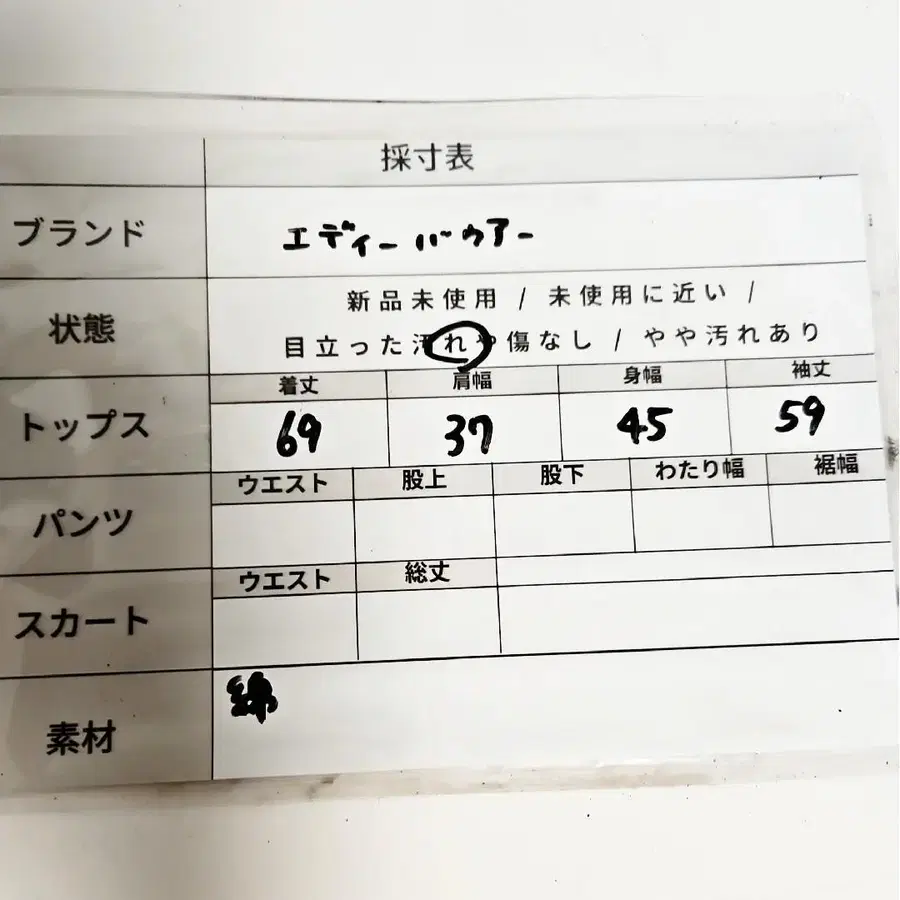 採寸表
ブランド エディーバウアー
状態 新品未使用 / 未使用に近い /
目立った汚れや傷なし / やや汚れあり
着丈 肩幅 身幅 袖丈
トップス 69 37 45 59
ウエスト 股上 股下 わたり幅 裾幅
パンツ
ウエスト 総丈
スカート
素材 綿